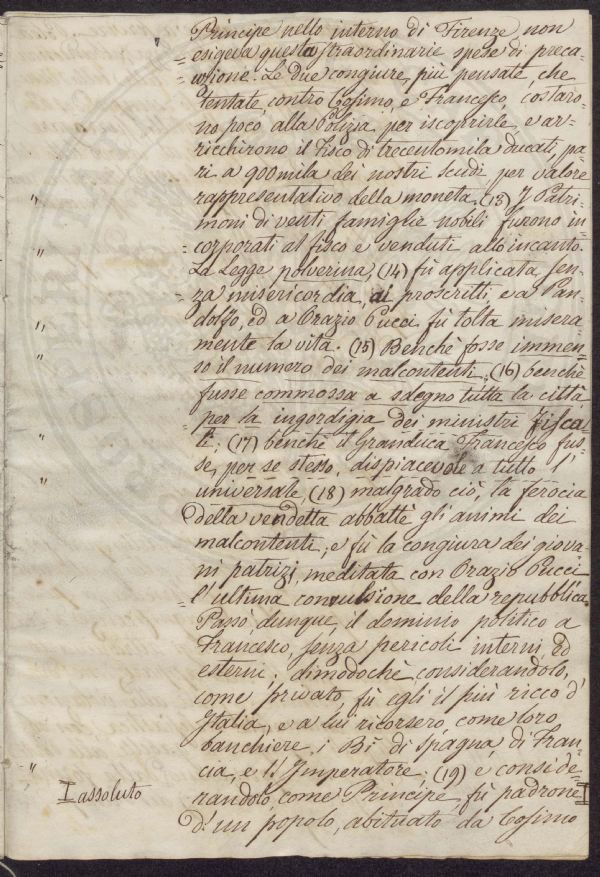 Principe nello interno di Firenze non
esigeva questa straordinarie spese di preca=
= uzione. Le due congiure, più pensate, che
tentate, contro Cosimo, e Francesco, costaro=
no poco alla Polizia per iscoprirle e ar=
ricchirono il Fisco di trecentomila ducati, pa=
ri a 900mila dei nostri scudi per valore
rappresentativo della moneta. (13) I Patri=
moni di venti famiglie nobili furono in=
corporati al fisco e venduti allo incanto.
La Legge polverina, (14) fù applicata sen=
= za misericordia, ai proscritti, e a Pan=
dolfo, ed a Orazio Pucci fù tolta misera=
mente la vita. (15) Benchè fosse immen=
so il numero dei malcontenti, (16) benchè
fusse commossa a sdegno tutta la città
per la ingordigia dei ministri fisca=
li, (17) benchè il Granduca Francesco fus=
se, per se stesso, dispiacevole a tutto l'
universale, (18) malgrado ciò, la ferocia
della vendetta abbattè gli animi dei
malcontenti, e fù la congiura dei giova=
ni patrizi, meditata con Orazio Pucci
= l'ultima convulsione della repubblica.
Passò dunque, il dominio politico a
Francesco, senza pericoli interni, ed
esterni; dimodochè considerandolo,
come privato, fù egli il più ricco d'
Italia, e a lui ricorsero come loro
banchiere, i Rè di Spagna, di Fran=
cia, e l'Imperatore; (19) e conside=
I assoluto
randolo, come Principe fù padrone I
d'un popolo, abituato da Cosimo